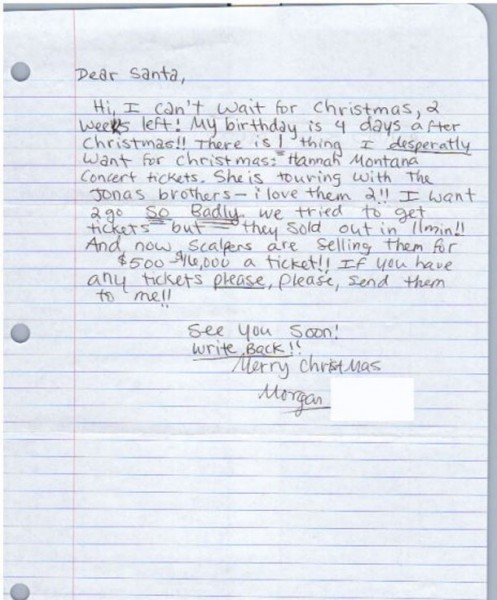 Dear Santa,
Hi, I can't wait for christmas, 2
weeks left! My birthday is 4 days after
Christmas!! There is 1 thing I desperatly
want for christmas: Hannah Montana
concert tickets. She is touring with the
Jonas brothers- i love them 2!! I want
2 go So Badly we tried to get
tickets but they sold out in 11min!!
And now scalpers are selling them for
$500-$16,000 a ticket!! If you have
any tickets please, please, send them
to me!!
See you soon!
Write Back!!
Merry Christmas
Morgan